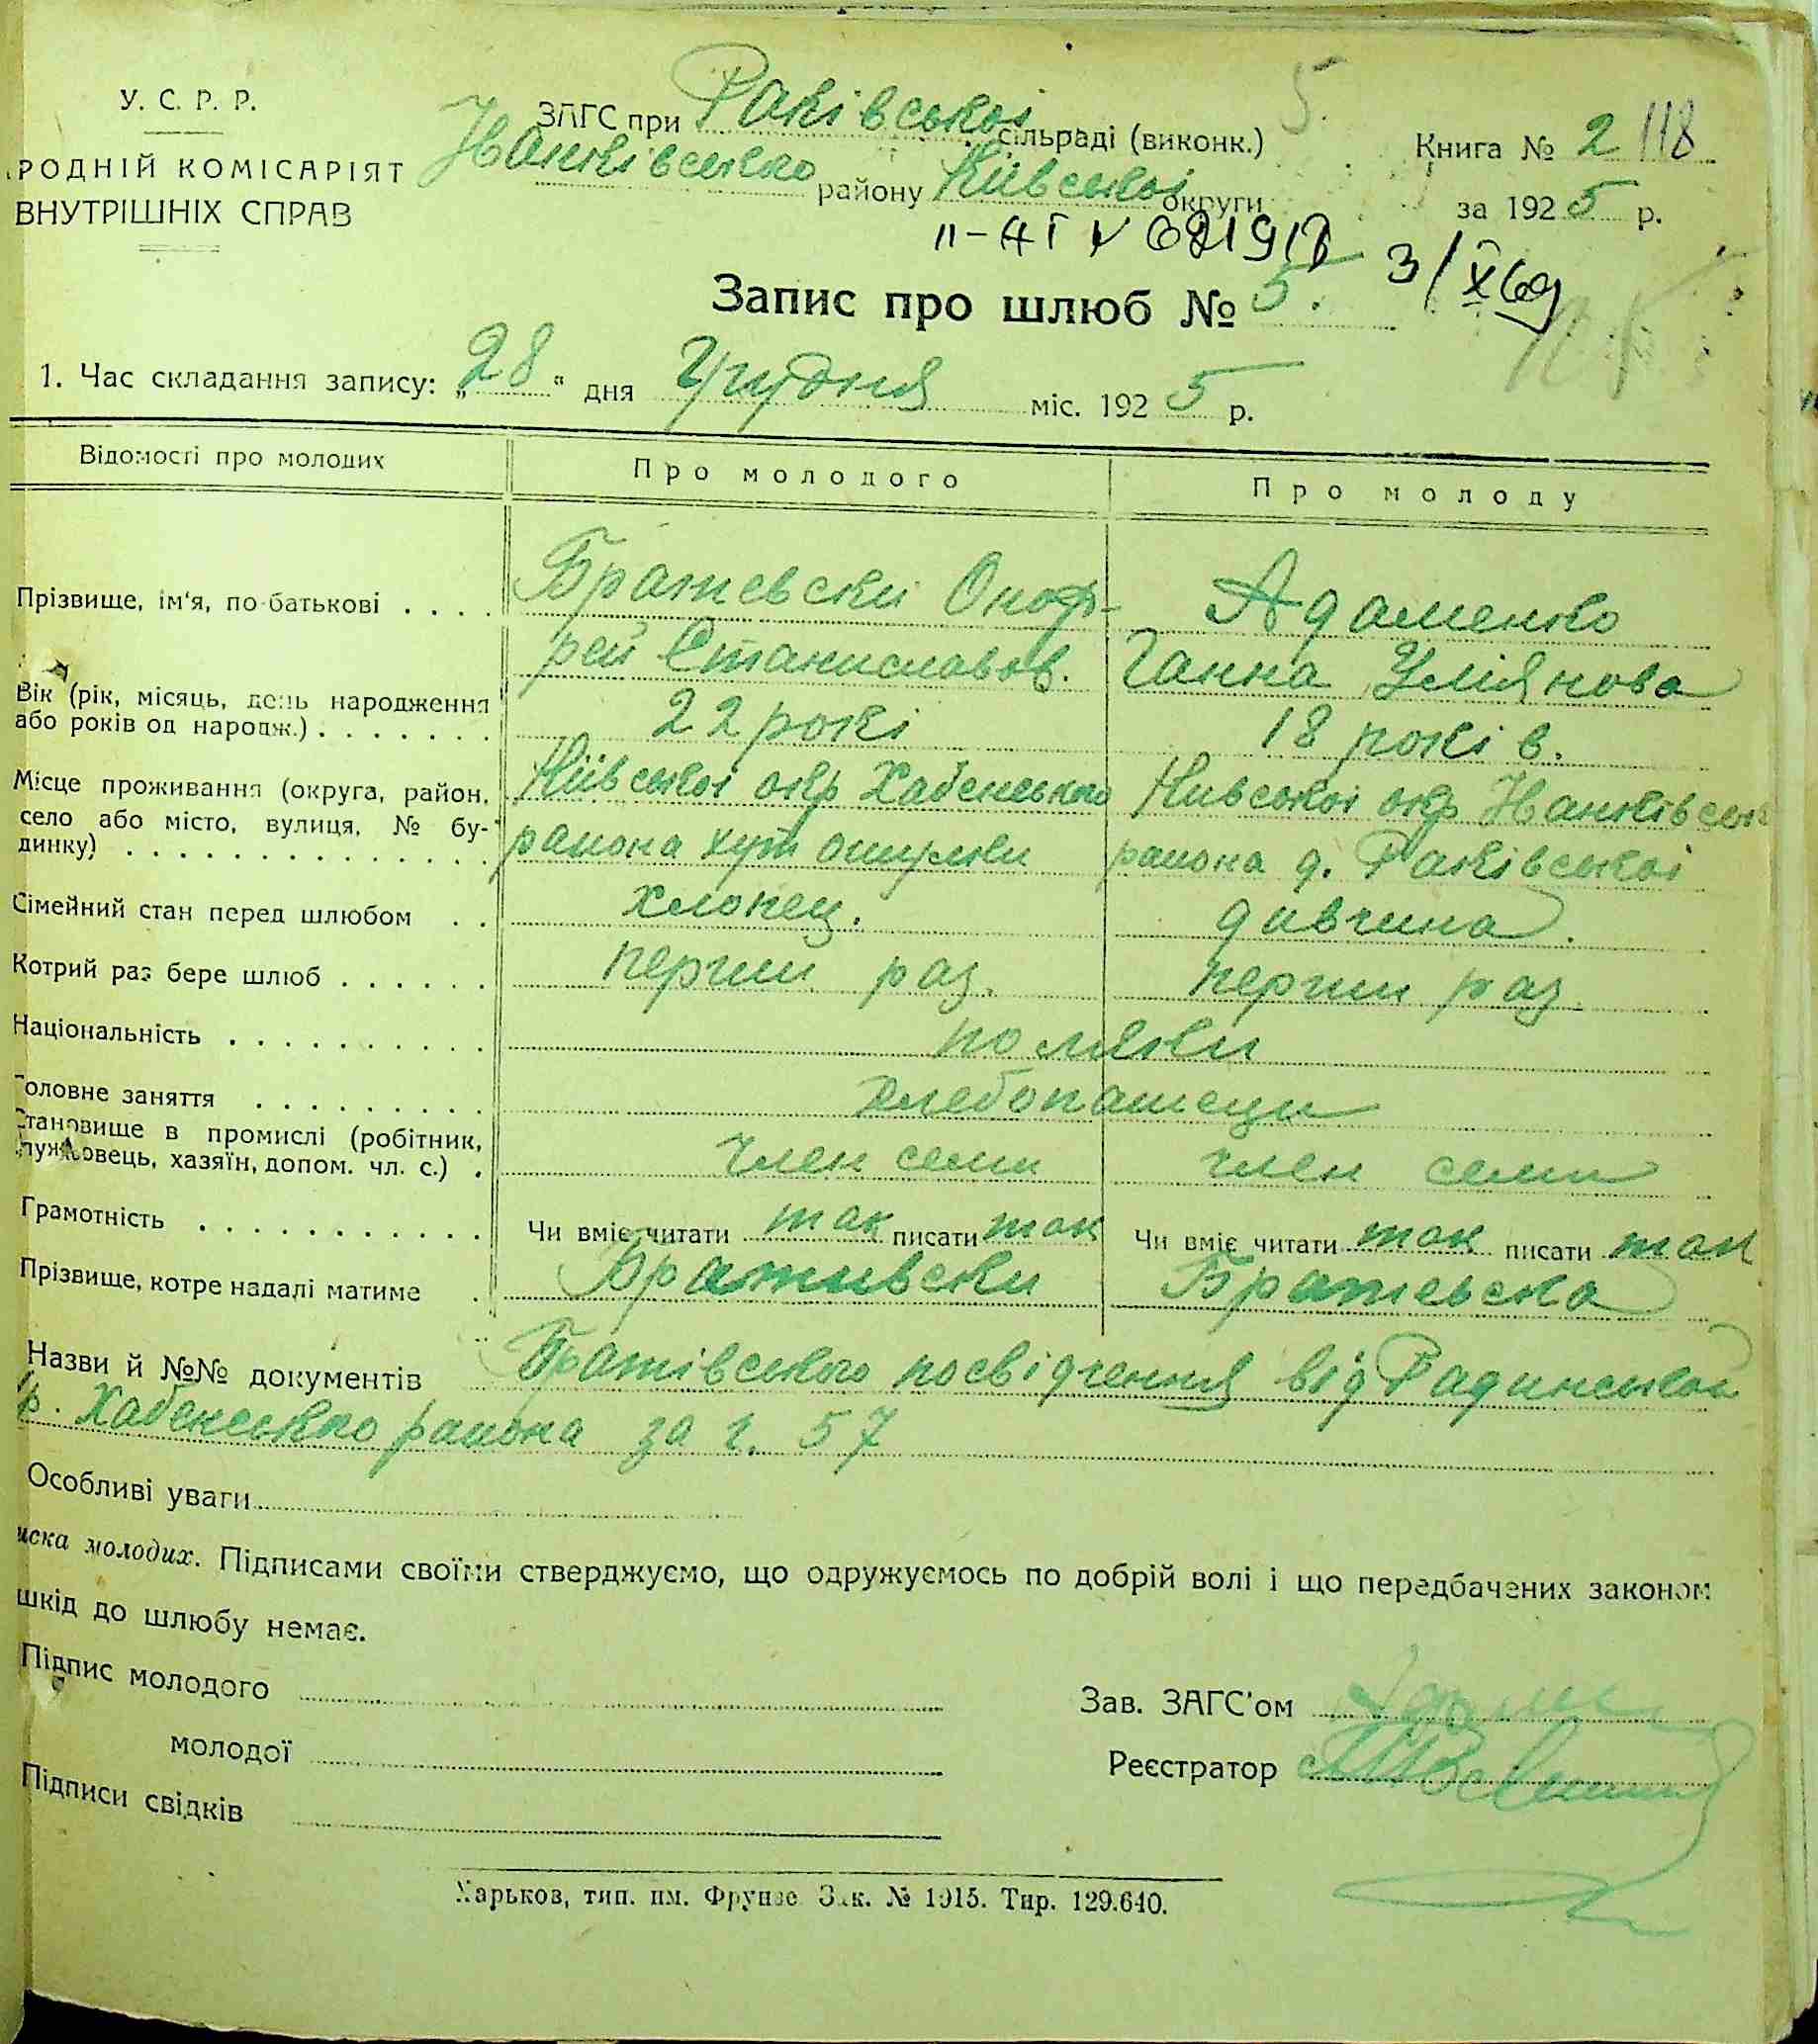 У. С. Р. Р.
РОДНІЙ КОМІСАРІЯТ
ВНУТРІШНІХ СПРАВ
ЗАГС при Раківської сільраді (виконк.)
району Київської округи
5.
Книга № 2 118
за 1925 р.
3/X 69
Запис про шлюб № 5.
1. Час складання запису: „28" дня Грудня міс. 1925 р.
Відомості про молодих Про молодого Про молоду
Прізвище, ім'я, по-батькові . . . . Бражевски Оноф- Адаменко
рей Станиславов. Ганна
Вік (рік, місяць, день народження
або років од народж.) . . . . . . . 22 рокі 18 років.
Місце проживання (округа, район, Київської окр Хабенського Київської окр
село або місто, вулиця, № бу-
динку) . . . . . . . . . . . . . . . района хут района д. Раківської
Сімейний стан перед шлюбом . . хлопец. дивчина.
Котрий раз бере шлюб . . . . . . перши раз. перши раз.
Національність . . . . . . . . . . поляки
Головне заняття . . . . . . . . . хлебопашеци
Становище в промислі (робітник,
службовець, хазяїн, допом. чл. с.) . член семи член семи
Грамотність . . . . . . . . . . . Чи вміє читати так писати так Чи вміє читати так писати так
Прізвище, котре надалі матиме . Браживски Бражевска
Назви й №№ документів Бражівського посвідчення від Радинської
р. Хабенсько района за г. 57
Особливі уваги
иска молодих. Підписами своїми стверджуємо, що одружуємось по добрій волі і що передбачених законом
шкід до шлюбу немає.
Підпис молодого
Зав. ЗАГС'ом
молодої
Реєстратор
Підписи свідків
Харьков, тип. им. Фрунзе Зак. № 1915. Тир. 129.640.